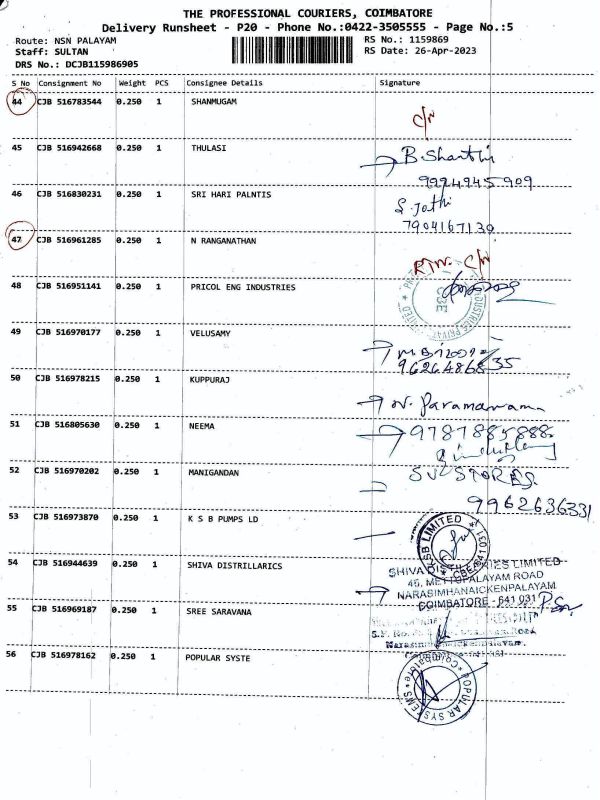 THE PROFESSIONAL COURIERS, COIMBATORE
Delivery Runsheet - P20 - Phone No.:0422-3505555 - Page No.:5
Route: NSN PALAYAM RS No.: 1159869
Staff: SULTAN RS Date: 26-Apr-2023
DRS No.: DCJB115986905
S No Consignment No Weight PCS Consignee Details Signature
44 CJB 516783544 0.250 1 SHANMUGAM
C/N
45 CJB 516942668 0.250 1 THULASI
B. Shanthi
9924945909
46 CJB 516830231 0.250 1 SRI HARI PALNTIS
S. Jothi
7904167130
47 CJB 516961285 0.250 1 N RANGANATHAN
C/N
48 CJB 516951141 0.250 1 PRICOL ENG INDUSTRIES
49 CJB 516970177 0.250 1 VELUSAMY
50 CJB 516978215 0.250 1 KUPPURAJ
51 CJB 516805630 0.250 1 NEEMA
9787885888
52 CJB 516970202 0.250 1 MANIGANDAN
SV STORES
9962636331
53 CJB 516973870 0.250 1 K S B PUMPS LD
KSB LIMITED
54 CJB 516944639 0.250 1 SHIVA DISTRILLARICS
SHIVA DISTILLERIES LIMITED
45, METTUPALAYAM ROAD
NARASIMHANAICKENPALAYAM
COIMBATORE - 641 031
55 CJB 516969187 0.250 1 SREE SARAVANA
56 CJB 516978162 0.250 1 POPULAR SYSTE
POPULAR SYSTEMS
Coimbatore